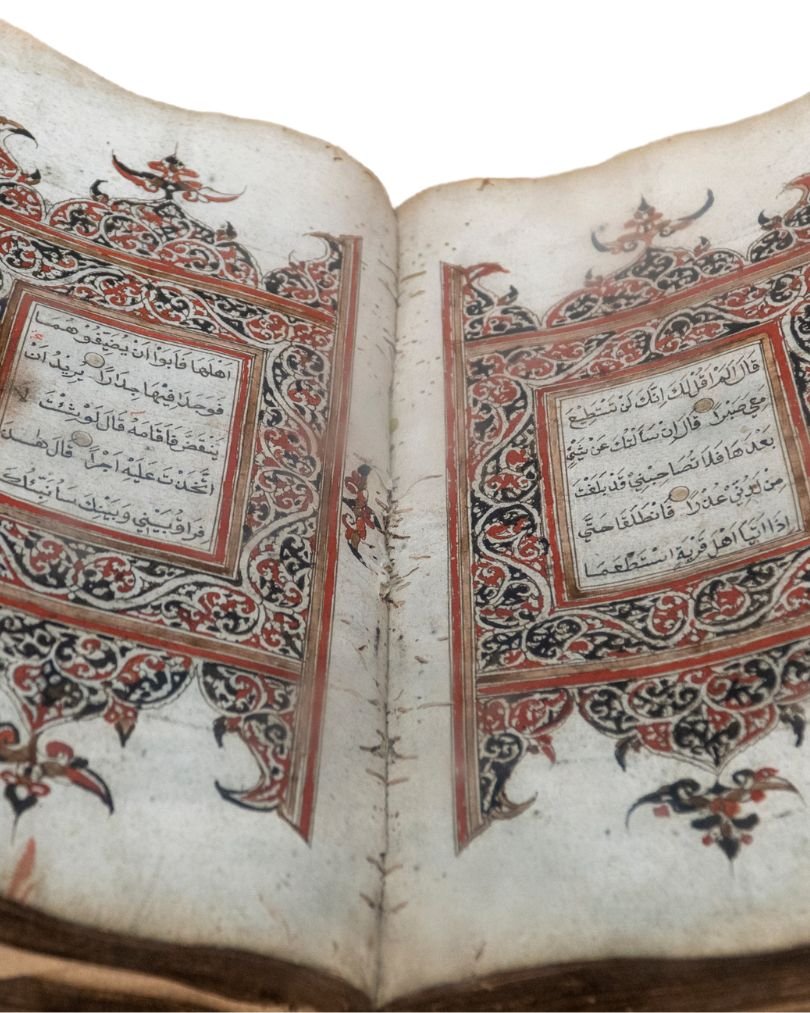 قَالَ اَلَمْ اَقُلْ لَكَ اِنَّكَ لَنْ تَسْتَطِيْعَ
مَعِيَ صَبْرًا قَالَ اِنْ سَاَلْتُكَ عَنْ شَيْءٍ
بَعْدَهَا فَلَا تُصَاحِبْنِيْ قَدْ بَلَغْتَ
مِنْ لَدُنِّيْ عُذْرًا فَانْطَلَقَا حَتَّى
اِذَا اَتَيَا اَهْلَ قَرْيَةٍ اسْتَطْعَمَا
اَهْلَهَا فَاَبَوْا اَنْ يُضَيِّفُوْهُمَا
فَوَجَدَا فِيْهَا جِدَارًا يُرِيْدُ اَنْ
يَنْقَضَّ فَاَقَامَهُ قَالَ لَوْ شِئْتَ
اتَّخَذْتَ عَلَيْهِ اَجْرًا قَالَ هٰذَا
فِرَاقُ بَيْنِيْ وَبَيْنِكَ سَاُنَبِّئُكَ